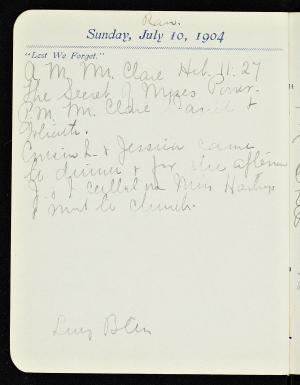 Rain.
Sunday, July 10, 1904
"Lest We Forget."
A.M. Mr. Clare Heb. 11:27
The Secret of Moses Power.
P.M. Mr. Clare David &
Goliath.
Cousin L. & Jessica came
to dinner & for the afternoon
J. & I called on Miss
& went to church.
Lucy